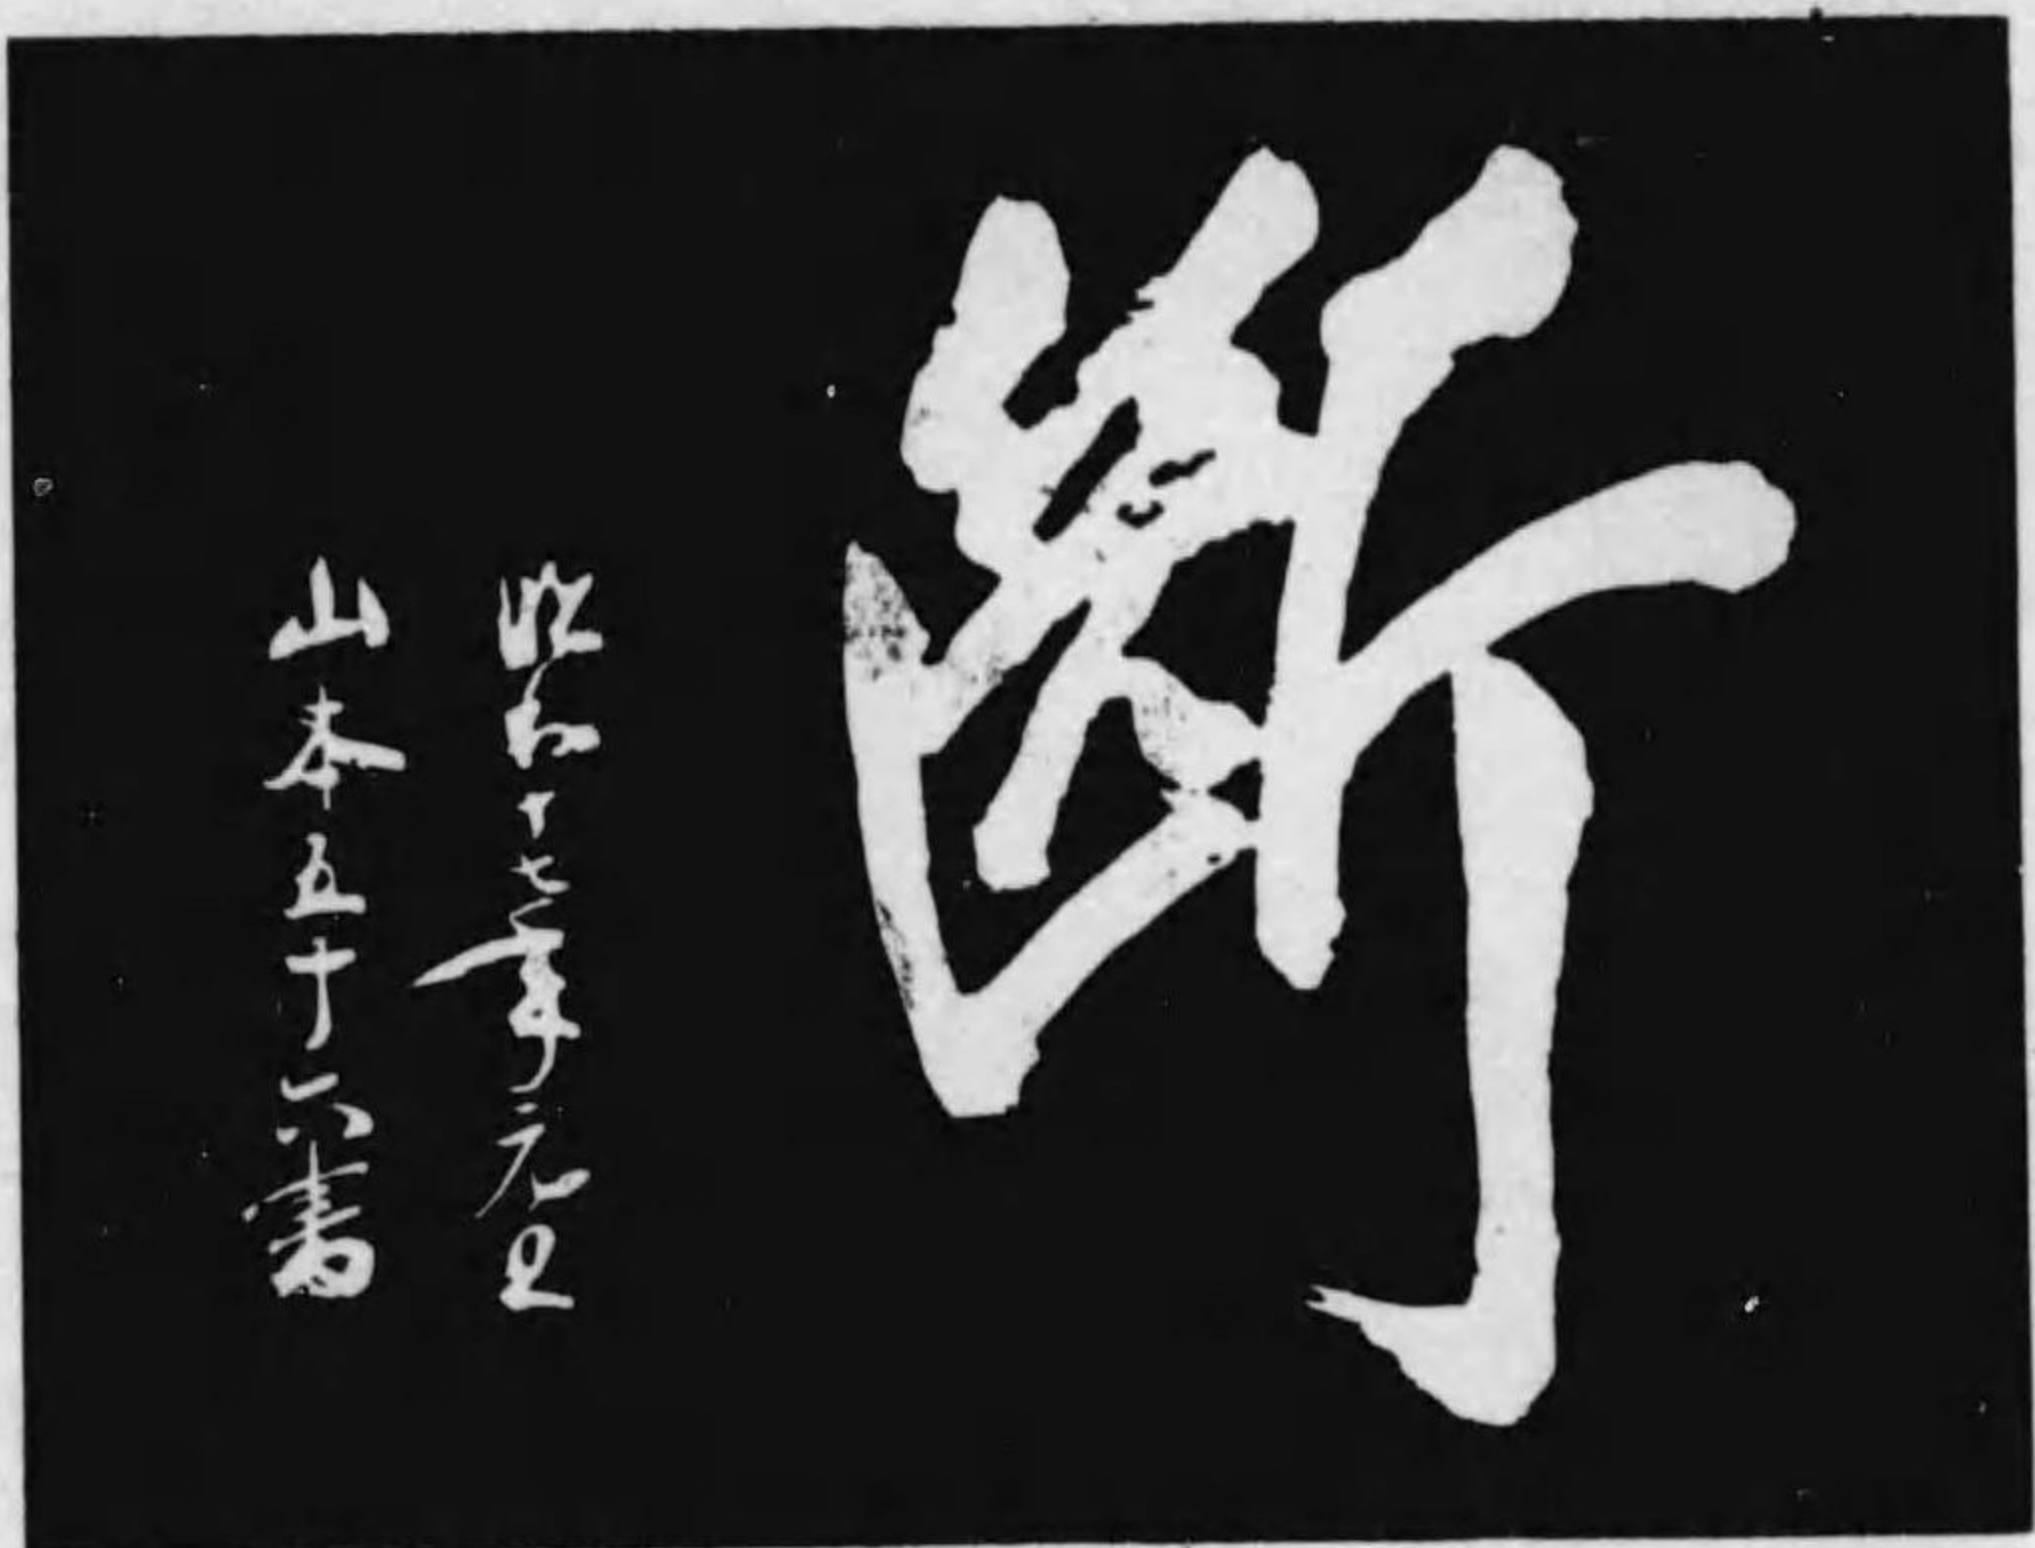 断
昭和十七年元旦
山本五十六書